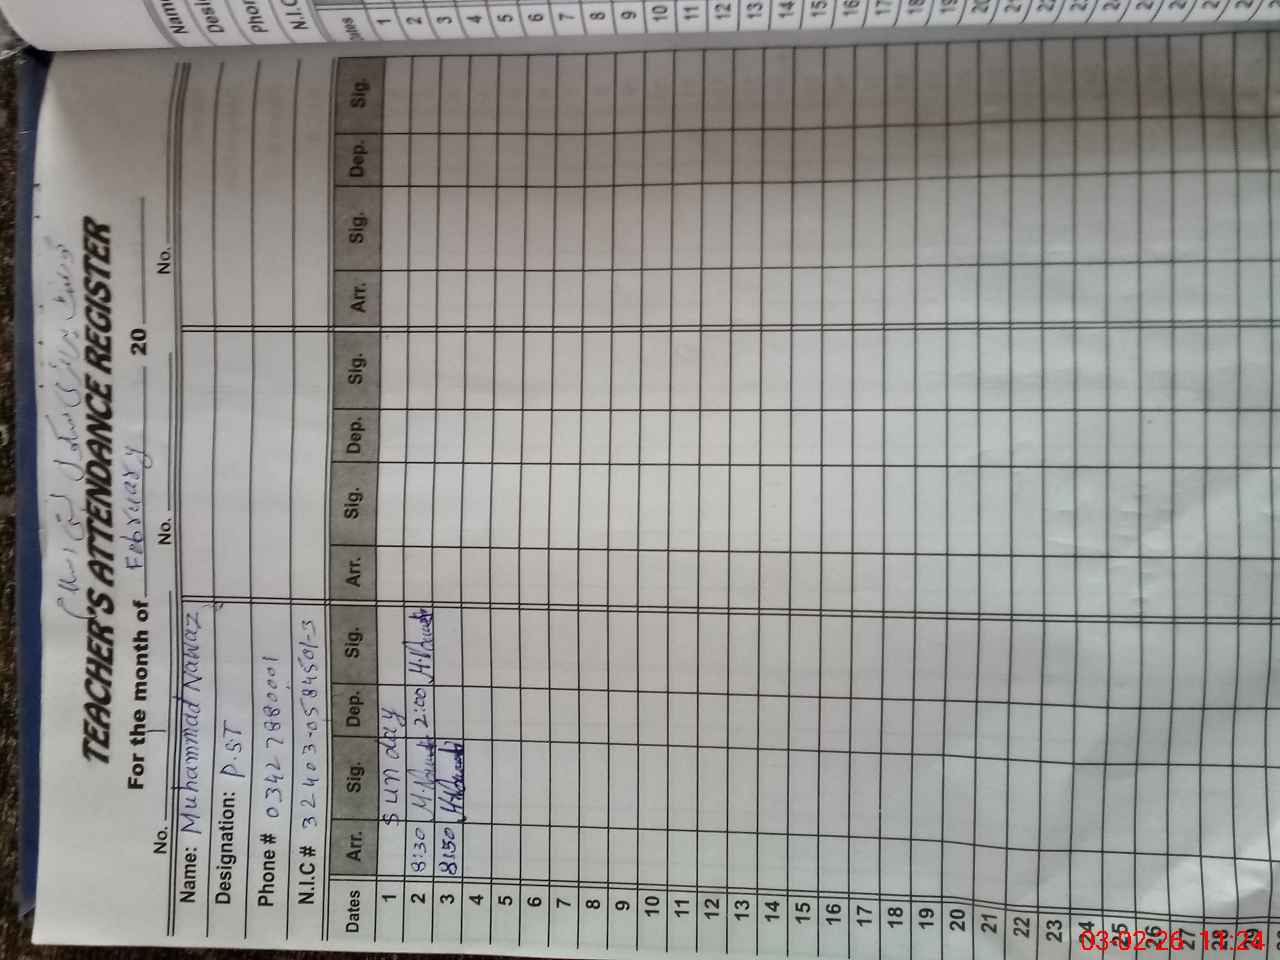 TEACHER'S ATTENDANCE REGISTER
For the month of February 20
No. 1 No. No.
Name: Muhammad Nawaz
Designation: P.S.T
Phone # 0342 7880001
N.I.C # 32403-0584501-3
Dates Arr. Sig. Dep. Sig. Arr. Sig. Dep. Sig. Arr. Sig. Dep. Sig.
1 Sunday
2 8:30 M.Nawaz 2:00 M.Nawaz
3 8:30 M.Nawaz
4
5
6
7
8
9
10
11
12
13
14
15
16
17
18
19
20
21
22
23
24
25
26
27
28
29
Phon
N.I.C
1
2
3
4
5
6
7
8
9
10
11
12
13
14
15
16
17
18
19
20
03-02-26 11:24